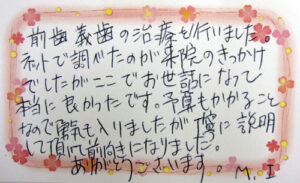 前歯義歯の治療を行いました
ネットで調べたのが来院のきっかけ
でしたがここでお世話になって
本当に良かったです。予算もかかること
なので勇気も入りましたが丁寧に説明
して頂いて前向きになりました。
ありがとうございます。M.I